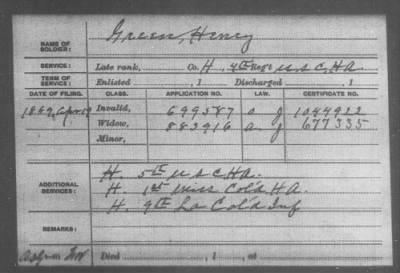 NAME OF SOLDIER: Green, Henry
SERVICE: Late rank, Co. H, 4th Reg't U.S.C.H.A.
TERM OF SERVICE: Enlisted , 1 Discharged , 1
DATE OF FILING. CLASS. APPLICATION NO. LAW. CERTIFICATE NO.
Invalid, 699587 g 1044922
Widow, 883916 a. g 677335
Minor,
ADDITIONAL SERVICES: H. 5th U S C H A.
H. 1st Miss Col'd H A.
H. 9th La Col'd Inf
REMARKS:
Died , 1 , at